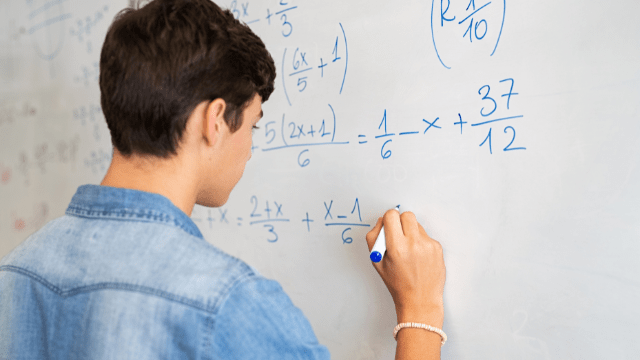 3x + 2/3
(R 1/10)
(6x/5 + 1)
+ 5(2x+1)/6 = 1/6 - x + 37/12
+ x = 2+x/3 + x-1/6